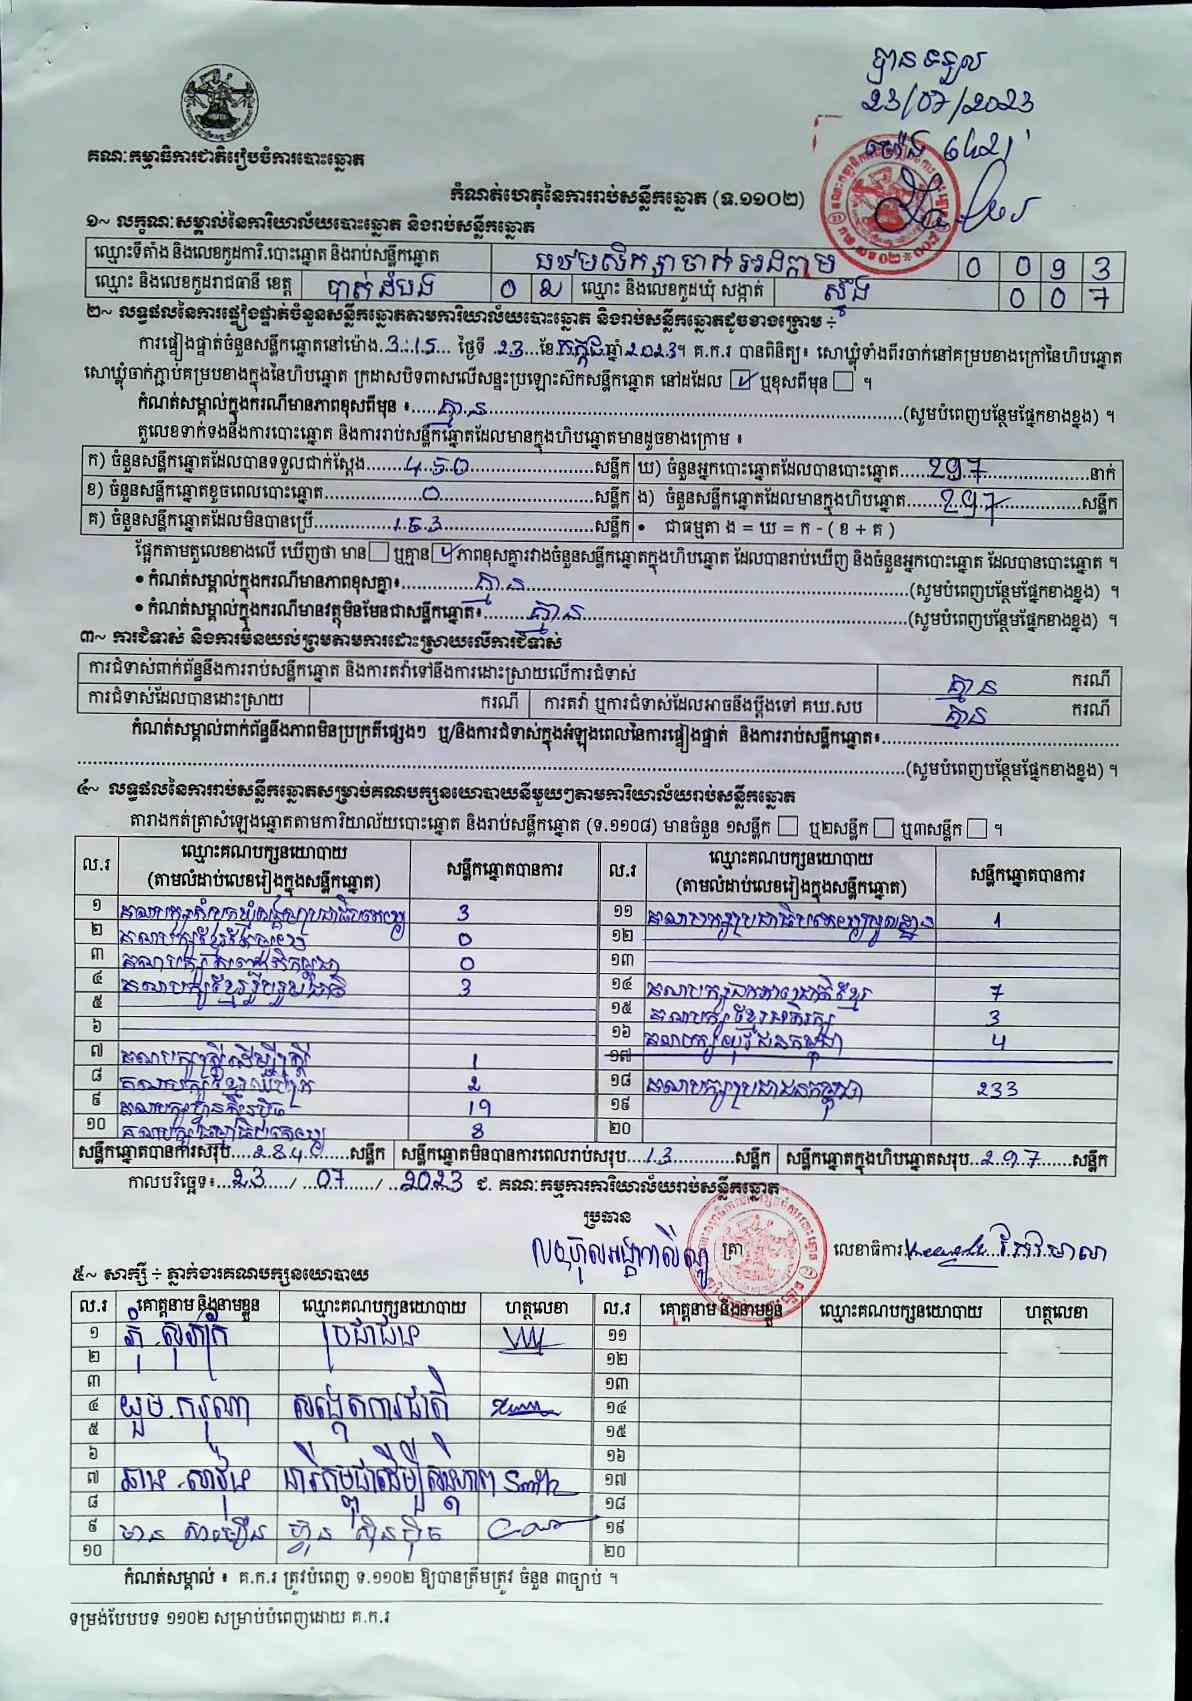 បានទទួល
23/07/2023
គណៈកម្មាធិការជាតិរៀបចំការបោះឆ្នោត
កំណត់ហេតុនៃការរាប់សន្លឹកឆ្នោត (ទ.១១០២)
១~ លក្ខណៈសម្គាល់នៃការិយាល័យបោះឆ្នោត និងរាប់សន្លឹកឆ្នោត
ឈ្មោះទីតាំង និងលេខកូដការិ.បោះឆ្នោត និងរាប់សន្លឹកឆ្នោត 0 0 9 3
ឈ្មោះ និងលេខកូដរាជធានី ខេត្ត បាត់ដំបង 0 ២ ឈ្មោះ និងលេខកូដឃុំ សង្កាត់ ស្ដឹង 0 0 7
២~ លទ្ធផលនៃការផ្ទៀងផ្ទាត់ចំនួនសន្លឹកឆ្នោតតាមការិយាល័យបោះឆ្នោត និងរាប់សន្លឹកឆ្នោតដូចខាងក្រោម ÷
ការផ្ទៀងផ្ទាត់ចំនួនសន្លឹកឆ្នោតនៅម៉ោង 3:15 ថ្ងៃទី 23 ខែ កក្កដា ឆ្នាំ 2023 ។ គ.ក.រ បានពិនិត្យ៖ សោឃ្លុំទាំងពីរចាក់នៅគម្របខាងក្រៅនៃហិបឆ្នោត
សោឃ្លុំចាក់ភ្ជាប់គម្របខាងក្នុងនៃហិបឆ្នោត ក្រដាសបិទពាសលើសន្ទះប្រឡោះស៊កសន្លឹកឆ្នោត នៅដដែល ☑ ឬខុសពីមុន ☐ ។
កំណត់សម្គាល់ក្នុងករណីមានភាពខុសពីមុន ៖ គ្មាន (សូមបំពេញបន្ថែមផ្នែកខាងខ្នង) ។
តួលេខទាក់ទងនឹងការបោះឆ្នោត និងការរាប់សន្លឹកឆ្នោតដែលមានក្នុងហិបឆ្នោតមានដូចខាងក្រោម ៖
ក) ចំនួនសន្លឹកឆ្នោតដែលបានទទួលជាក់ស្តែង 450 សន្លឹក ឃ) ចំនួនអ្នកបោះឆ្នោតដែលបានបោះឆ្នោត 297 នាក់
ខ) ចំនួនសន្លឹកឆ្នោតខូចពេលបោះឆ្នោត 0 សន្លឹក ង) ចំនួនសន្លឹកឆ្នោតដែលមានក្នុងហិបឆ្នោត 297 សន្លឹក
គ) ចំនួនសន្លឹកឆ្នោតដែលមិនបានប្រើ 153 សន្លឹក • ជាធម្មតា ង = ឃ = ក - ( ខ + គ )
ផ្អែកតាមតួលេខខាងលើ ឃើញថា មាន ☐ ឬគ្មាន ☑ ភាពខុសគ្នារវាងចំនួនសន្លឹកឆ្នោតក្នុងហិបឆ្នោត ដែលបានរាប់ឃើញ និងចំនួនអ្នកបោះឆ្នោត ដែលបានបោះឆ្នោត ។
• កំណត់សម្គាល់ក្នុងករណីមានភាពខុសគ្នា៖ គ្មាន (សូមបំពេញបន្ថែមផ្នែកខាងខ្នង) ។
• កំណត់សម្គាល់ក្នុងករណីមានវត្ថុមិនមែនជាសន្លឹកឆ្នោត៖ គ្មាន (សូមបំពេញបន្ថែមផ្នែកខាងខ្នង) ។
៣~ ការជំទាស់ និងការមិនយល់ព្រមតាមការដោះស្រាយលើការជំទាស់
ការជំទាស់ពាក់ព័ន្ធនឹងការរាប់សន្លឹកឆ្នោត និងការតវ៉ាទៅនឹងការដោះស្រាយលើការជំទាស់ គ្មាន ករណី
ការជំទាស់ដែលបានដោះស្រាយ ករណី ការតវ៉ា ឬការជំទាស់ដែលអាចនឹងប្តឹងទៅ គឃ.សប គ្មាន ករណី
កំណត់សម្គាល់ពាក់ព័ន្ធនឹងភាពមិនប្រក្រតីផ្សេងៗ ឬ/និងការជំទាស់ក្នុងអំឡុងពេលនៃការផ្ទៀងផ្ទាត់ និងការរាប់សន្លឹកឆ្នោត៖
(សូមបំពេញបន្ថែមផ្នែកខាងខ្នង) ។
៤~ លទ្ធផលនៃការរាប់សន្លឹកឆ្នោតសម្រាប់គណបក្សនយោបាយនីមួយៗតាមការិយាល័យរាប់សន្លឹកឆ្នោត
តារាងកត់ត្រាសំឡេងឆ្នោតតាមការិយាល័យបោះឆ្នោត និងរាប់សន្លឹកឆ្នោត (ទ.១១០៨) មានចំនួន ១សន្លឹក ☐ ឬ២សន្លឹក ☐ ឬ៣សន្លឹក ☐ ។
ល.រ ឈ្មោះគណបក្សនយោបាយ (តាមលំដាប់លេខរៀងក្នុងសន្លឹកឆ្នោត) សន្លឹកឆ្នោតបានការ ល.រ ឈ្មោះគណបក្សនយោបាយ (តាមលំដាប់លេខរៀងក្នុងសន្លឹកឆ្នោត) សន្លឹកឆ្នោតបានការ
១ គណបក្ស 3 ១១ គណបក្សប្រជាធិបតេយ្យមូលដ្ឋាន 1
២ គណបក្ស 0 ១២
៣ គណបក្ស 0 ១៣
៤ គណបក្សខ្មែររួបរួមជាតិ 3 ១៤ គណបក្សឯកភាពជាតិខ្មែរ 7
៥ ១៥ គណបក្សខ្មែរអភិរក្ស 3
៦ ១៦ គណបក្សយុវជនកម្ពុជា 4
៧ គណបក្សស្ត្រីដើម្បីស្ត្រី 1 ១៧
៨ គណបក្ស 2 ១៨ គណបក្សប្រជាជនកម្ពុជា 233
៩ គណបក្សហ៊្វុនស៊ិនប៉ិច 19 ១៩
១០ គណបក្សធម្មាធិបតេយ្យ 8 ២០
សន្លឹកឆ្នោតបានការសរុប 284 សន្លឹក សន្លឹកឆ្នោតមិនបានការពេលរាប់សរុប 13 សន្លឹក សន្លឹកឆ្នោតក្នុងហិបឆ្នោតសរុប 297 សន្លឹក
កាលបរិច្ឆេទ៖ 23 / 07 / 2023 ជ. គណៈកម្មការការិយាល័យរាប់សន្លឹកឆ្នោត
ប្រធាន
ត្រា លេខាធិការ
៥~ សាក្សី ÷ ភ្នាក់ងារគណបក្សនយោបាយ
ល.រ គោត្តនាម និងនាមខ្លួន ឈ្មោះគណបក្សនយោបាយ ហត្ថលេខា ល.រ គោត្តនាម និងនាមខ្លួន ឈ្មោះគណបក្សនយោបាយ ហត្ថលេខា
១ ប្រជាជន ១១
២ ១២
៣ ១៣
៤ យួម ករុណា សង្កេតការជាតិ ១៤
៥ ១៥
៦ ១៦
៧ នារីកម្ពុជាដើម្បីសន្តិភាព ១៧
៨ ១៨
៩ ហ៊្វុន ស៊ិនប៉ិច ១៩
១០ ២០
កំណត់សម្គាល់ ៖ គ.ក.រ ត្រូវបំពេញ ទ.១១០២ ឱ្យបានត្រឹមត្រូវ ចំនួន ៣ច្បាប់ ។
ទម្រង់បែបបទ ១១០២ សម្រាប់បំពេញដោយ គ.ក.រ